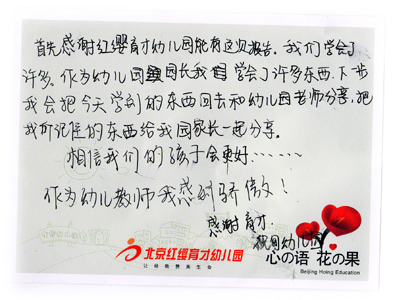 首先感谢红缨育才幼儿园能有这次报告。我们学会了
许多。作为幼儿园园长我们学会了许多东西。下步
我会把今天学到的东西回去和幼儿园老师分享,把
我所记住的东西给我园家长一起分享。
相信我们的孩子会更好……
作为幼儿教师我感到骄傲!
感谢育才.
幼儿园
北京红缨育才幼儿园
让经典费英生命
心の语 花の果
Beijing Hoing Education